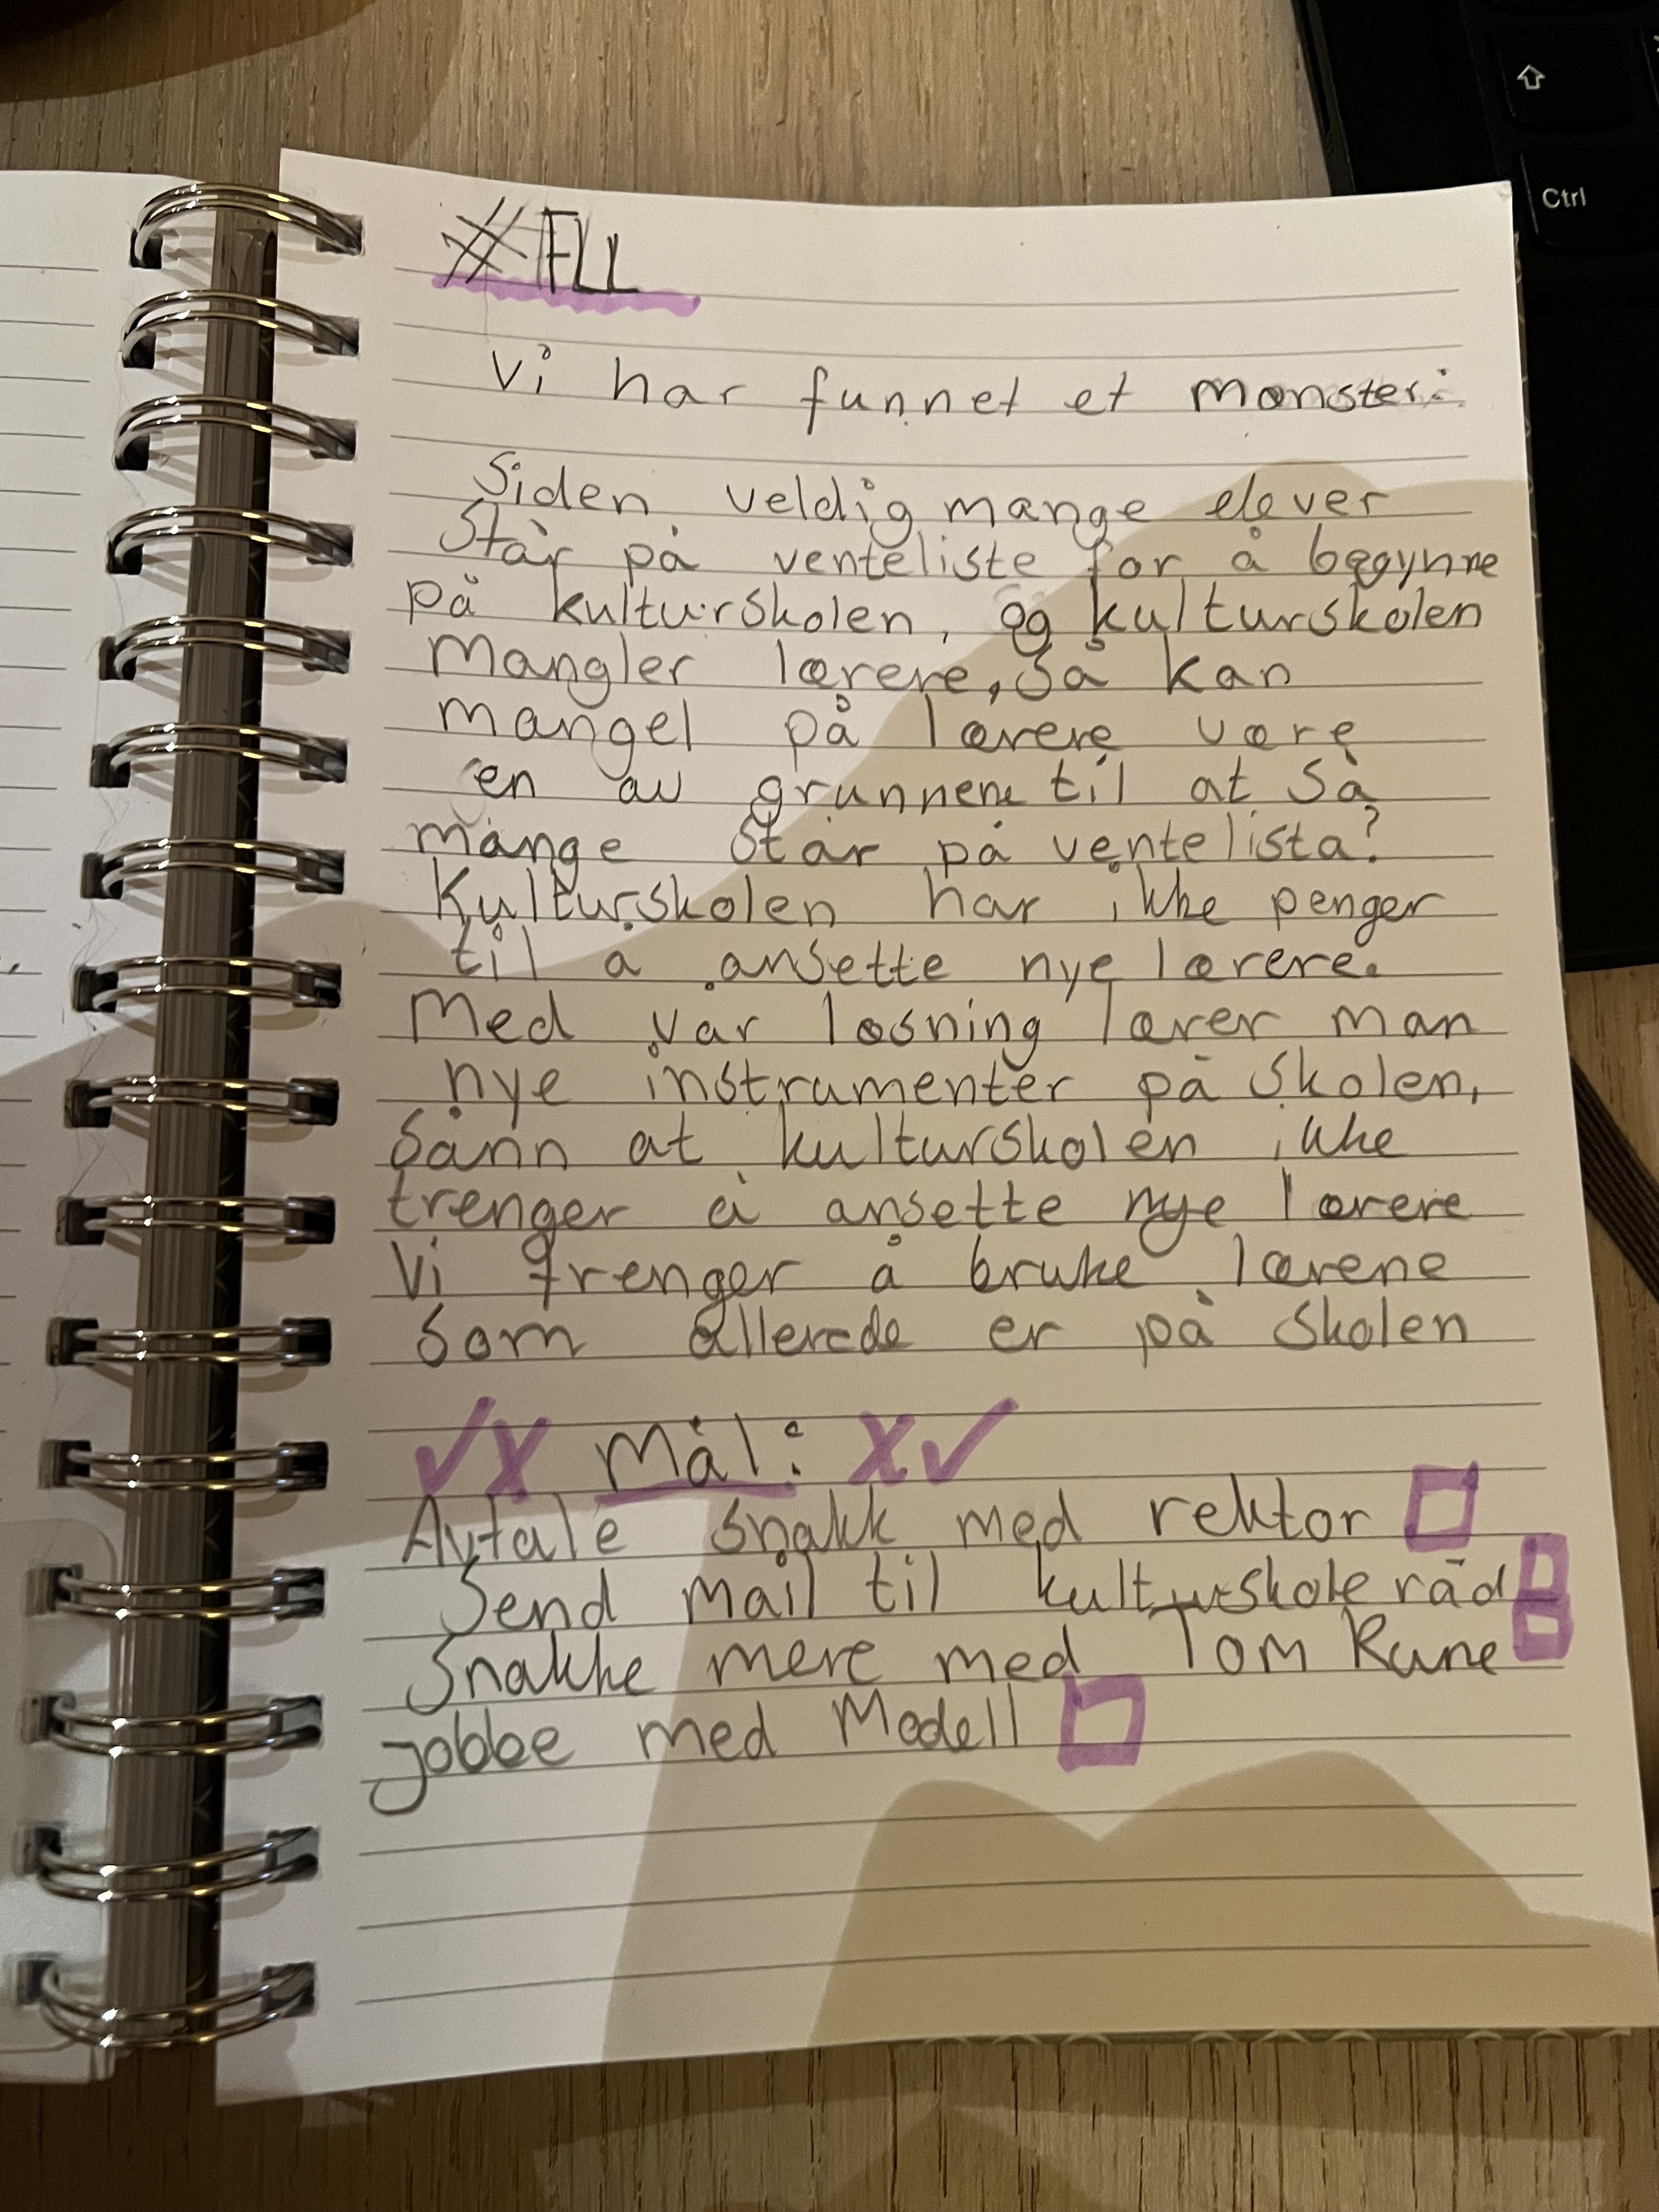 #FLL
Vi har funnet et mønster:
Siden veldig mange elever
står på venteliste for å begynne
på kulturskolen, og kulturskolen
mangler lærere, så kan
mangel på lærere være
en av grunnene til at så
mange står på ventelista?
Kulturskolen har ikke penger
til å ansette nye lærere.
Med vår løsning lærer man
nye instrumenter på skolen,
sånn at kulturskolen ikke
trenger å ansette nye lærere
Vi trenger å bruke lærene
som allerede er på skolen
✓X Mål: X✓
Avtale snakk med rektor
Send mail til kulturskoleråd
Snakke mere med Tom Rune
jobbe med Modell
Ctrl